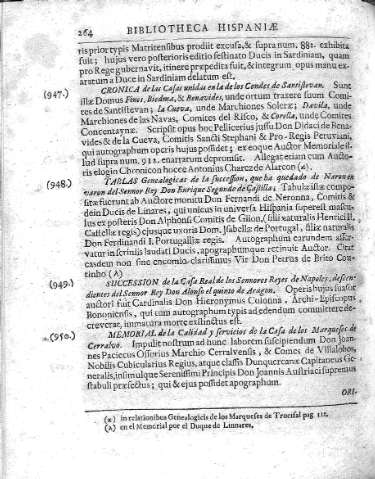 264 BIBLIOTHECA HISPANIÆ
ris prior typis Matritensibus prodiit excusa, & supra num. 881. exhibita
fuit; hujus vero posterioris editio festinato Ducis in Sardiniam, quam
pro Rege gubernavit, itinere præpedita fuit, & integrum opus manu ex-
aratum a Duce in Sardiniam delatum est.
(947.) CRONICA de las Casas unidas en la de los Condes de Santistevan. Sunt
illæ Domus Fines, Biedma, & Benavides, unde ortum traxere suum Comi-
tes de Santistevan; la Cueva, unde Marchiones Soleræ; Davila, unde
Marchiones de las Navas, Comites del Risco, & Corella, unde Comites
Concentaynæ. Scripsit opus hoc Pellicerius jussu Don Didaci de Bena-
vides & de la Cueva, Comitis Sancti Stephani & Pro-Regis Peruviani,
qui autographum operis hujus posidet; ex eoque Auctor Memoriale il-
lud supra num. 911. enarratum depromsit. Allegat etiam cum Aucto-
ris elogio Chronicon hocce Antonius Suarez de Alarcon (x).
(948.) TABLAS Genealogicas de la succession, que ha quedado de Varon en
varon del Sennor Rey Don Enrique Segundo de Castilla; Tabulæ istæ compo-
sitæ fuerunt ab Auctore monitu Don Fernandi de Neronna, Comitis &
dein Ducis de Linares, qui unicus in universa Hispania superest mascu-
lus ex posteris Don Alphonsi Comitis de Gijon, (filii naturalis Henrici II.
Castellæ regis) ejusque uxoris Dom. Isabellæ de Portugal, filiæ naturalis
Don Ferdinandi I. Portugalliæ regis. Autographum earundem asser-
vatur in scriniis laudati Ducis, apographumque retinuit Auctor. Citat
easdem non sine encomio clarissimus Vir Don Petrus de Brito Cou-
tinho (A)
(949.) SUCCESSION de la Casa Real de los Sennores Reyes de Napoles, descen-
dientes del Sennor Rey Don Alonso el quinto de Aragon. Operis hujus suasor
auctori fuit Cardinalis Don Hieronymus Colonna, Archi-Episcopus
Bononiensis, qui cum autographum typis ad edendum committere de-
creverat, immatura morte exstinctus est.
(950.) MEMORIAL de la Calidad y servicios de la Casa de los Marqueses de
Cerralvo. Impulit nostrum ad hunc laborem suscipiendum Don Joan-
nes Paciecus Osserius Marchio Cerralvensis, & Comes de Villalobos,
Nobilis Cubicularius Regius, atque classis Dunquercanæ Capitaneus Ge-
neralis, insimulque Serenissimi Principis Don Joannis Austriaci supremus
stabuli præfectus; qui & ejus posidet apographum.
ORI-
(x) in relationibus Genealogicis de los Marqueses de Trocifal pag. 112.
(A) en el Memorial por el Duque de Linnares.